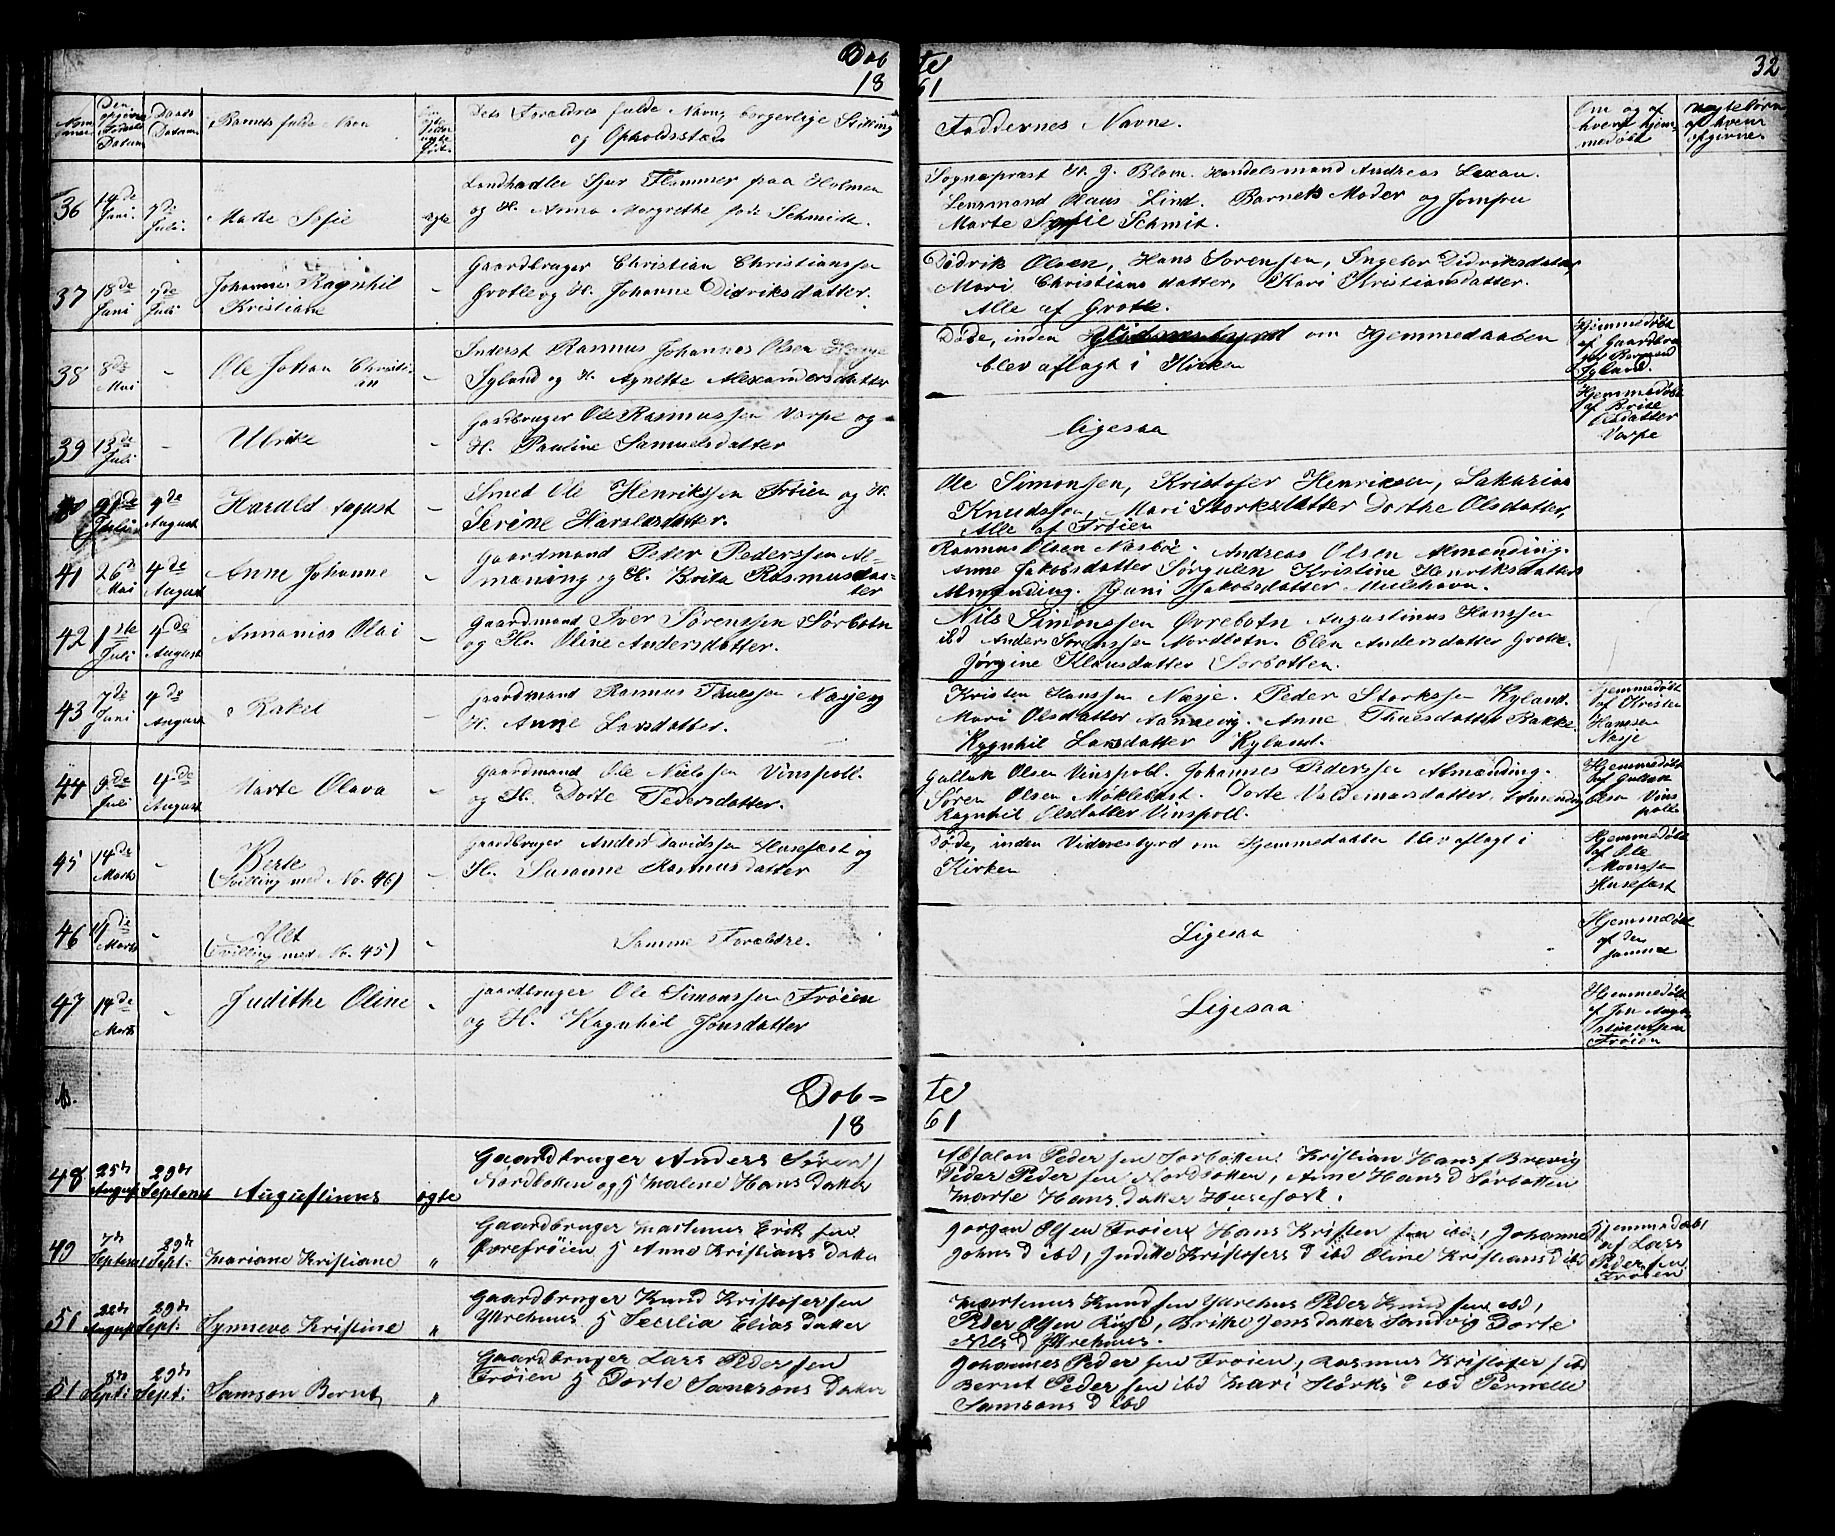 Døb
18
te
61
32
Barnets fulde Navn
Dets Forældres fulde Navn, borgerlige Stilling
og Opholdssted
Faddernes Navne.
Om og af
hvem hjem
medøbt
af hvem
opgivne.
36 14de Juni. 7de Juli. Marte Sofie ægte
Landhandler Sjur Flammer paa Holmen
og H. Anna Margrethe født Schmidt.
Sogneprest H. J. Blom. Handelsmand Andreas Lexau.
Lensmand Claus Lind. Barnets Moder og Jomfru
Marte Sofie Schmit.
37 18de Juni 7de Juli Johanne Ragnhil
Kristiane
Gaardbruger Christian Christianssen
Grotle og H. Johanne Didriksdatter.
Didrik Olsen, Hans Sørensen, Ingebor Didriksdatter
Mari Christians datter, Kari Kristiansdatter.
Alle af Grotle.
38 8de Mai - Ole Johan Christi-
an
Inderst Rasmus Johannes Olsen
Igland og H. Agnette Alexandersdatter
Døde, inden Vidnesbyrd om Hjemmedaaben
blev aflagt i Kirken
Hjemmedøbt
af Gaardbru
Igland.
39 13de Juli - Ulrike
Gaardbruger Ole Rasmussen Varpe og
H. Pauline Samuelsdatter
Ligesaa
Hjemmedøbt
af Brite
Olsdatter
Varpe
40 21de Juli 4de August Harald August
Smed Ole Henrikssen Frøien og H.
Serine Haraldsdatter.
Ole Simonsen, Kristofer Henriksen, Sakarias
Knudssen, Mari Storksdatter Dorthe Olsdatter,
Alle af Frøien
41 26de Mai 4de August Anne Johanne
Gaardmand Peder Pederssen Al-
mæning og H. Brita Rasmusdat-
ter
Rasmus Olsen Nasbøe. Andreas Olsen Almending.
Anne Jakobsdatter Sørgulen Kristine Henriksdatter
Almending. Guni Jakobsdatter Mulehavn.
42 1ste Juli 4de August Annanias Olai
Gaardmand Iver Sørenssen Sørbotn
og H. Oline Andersdatter.
Nils Simonssen Øvrebotn Augustinus Hanssen
ibd Anders Sørenssen Nordbotn. Elen Andersdatter Grotle.
Jørgine Klausdatter Sørbotten.
43 7de Juni 4de August Rakel
Gaardmand Rasmus Thuessen Nasje og
H. Anne Larsdatter.
Kristen Hanssen Nasje. Peder Storkssen Ryland.
Mari Olsdatter Nannevig. Anne Thuesdatter Bakke.
Ragnhil Larsdatter Ryland.
Hjemmedøbt
af Kristen
Hanssen
Nasje
44 9de Juli 4de August Marte Olava
Gaardmand Ole Nielssen Vinspoll.
og H. Dorte Pedersdatter.
Gullak Olsen Vinspoll. Johannes Pederssen Almænding.
Søren Olsen Møklebust. Dorte Valdemarsdatter Almending
Ragnhil Olsdatter Vinspoll.
Hjemmedøbt
af Gullak
Olsen Vins
polle
45 14de Marts - Birte
(Tvilling med No. 46)
Gaardbruger Anders Davidssen Husefæst og
H. Susanne Rasmusdatter
Døde, inden Vidnesbyrd om Hjemmedaaben blev aflagt i
Kirken
Hjemmedøbt
af Ole
Monssen
Husefæst
46 14de Marts -
(Tvilling med No. 45)
Samme Forældre.
Ligesaa
Hjemmedøbt
af den
samme
47 14de Marts - Judithe Oline
Gaardbruger Ole Simonssen Frøien
og H. Ragnhil Jonsdatter
Ligesaa
Hjemmedøbt
Frøien
Døb=
18
te
61
48 25de August 29de Septemb Augustinus ægte
Gaardbruger Anders Søren
Nordbotten og H Malene Hans datter
Absalon Peder sen Sørbotten. Kristian Hans s Brevig
Peder Peder sen Nordbotten, Anne Hans d Sørbotten
Marte Hans datter Husefæst.
49 7de Septemb 29de Sept: Mariane Kristiane "
Gaardbruger Martinus Erik sen
Øvrefrøien H Anne Kristians datter
Jørgen Olsen Frøien Hans Kristen sen ibd, Johanne
Johns d ibd, Judith Kristofers d ibd Oline Kristians d ibd
Hjemmedøbt
af Lars
Peder sen
Frøien
51 22de August 29de Sept: Synneve Kristine "
Gaardbruger Knud Kristofer sen
Ytrehuus H Secilia Elias datter
Martinus Knud sen Ytrehuus Peder Knud sen ibd,
Peder Olsen, Britte Jens datter Sandvig Dorte
Nils d Ytrehuus.
51 8de Sept: 29de Sept: Samson Bernt "
Gaardbruger Lars Peder sen
Frøien H Dorte Samsons datter
Johannes Peder sen Frøien, Rasmus Kristofer s ibd
Bernt Peder sen ibd Mari Størks d ibd Pernelle
Samsons d ibd